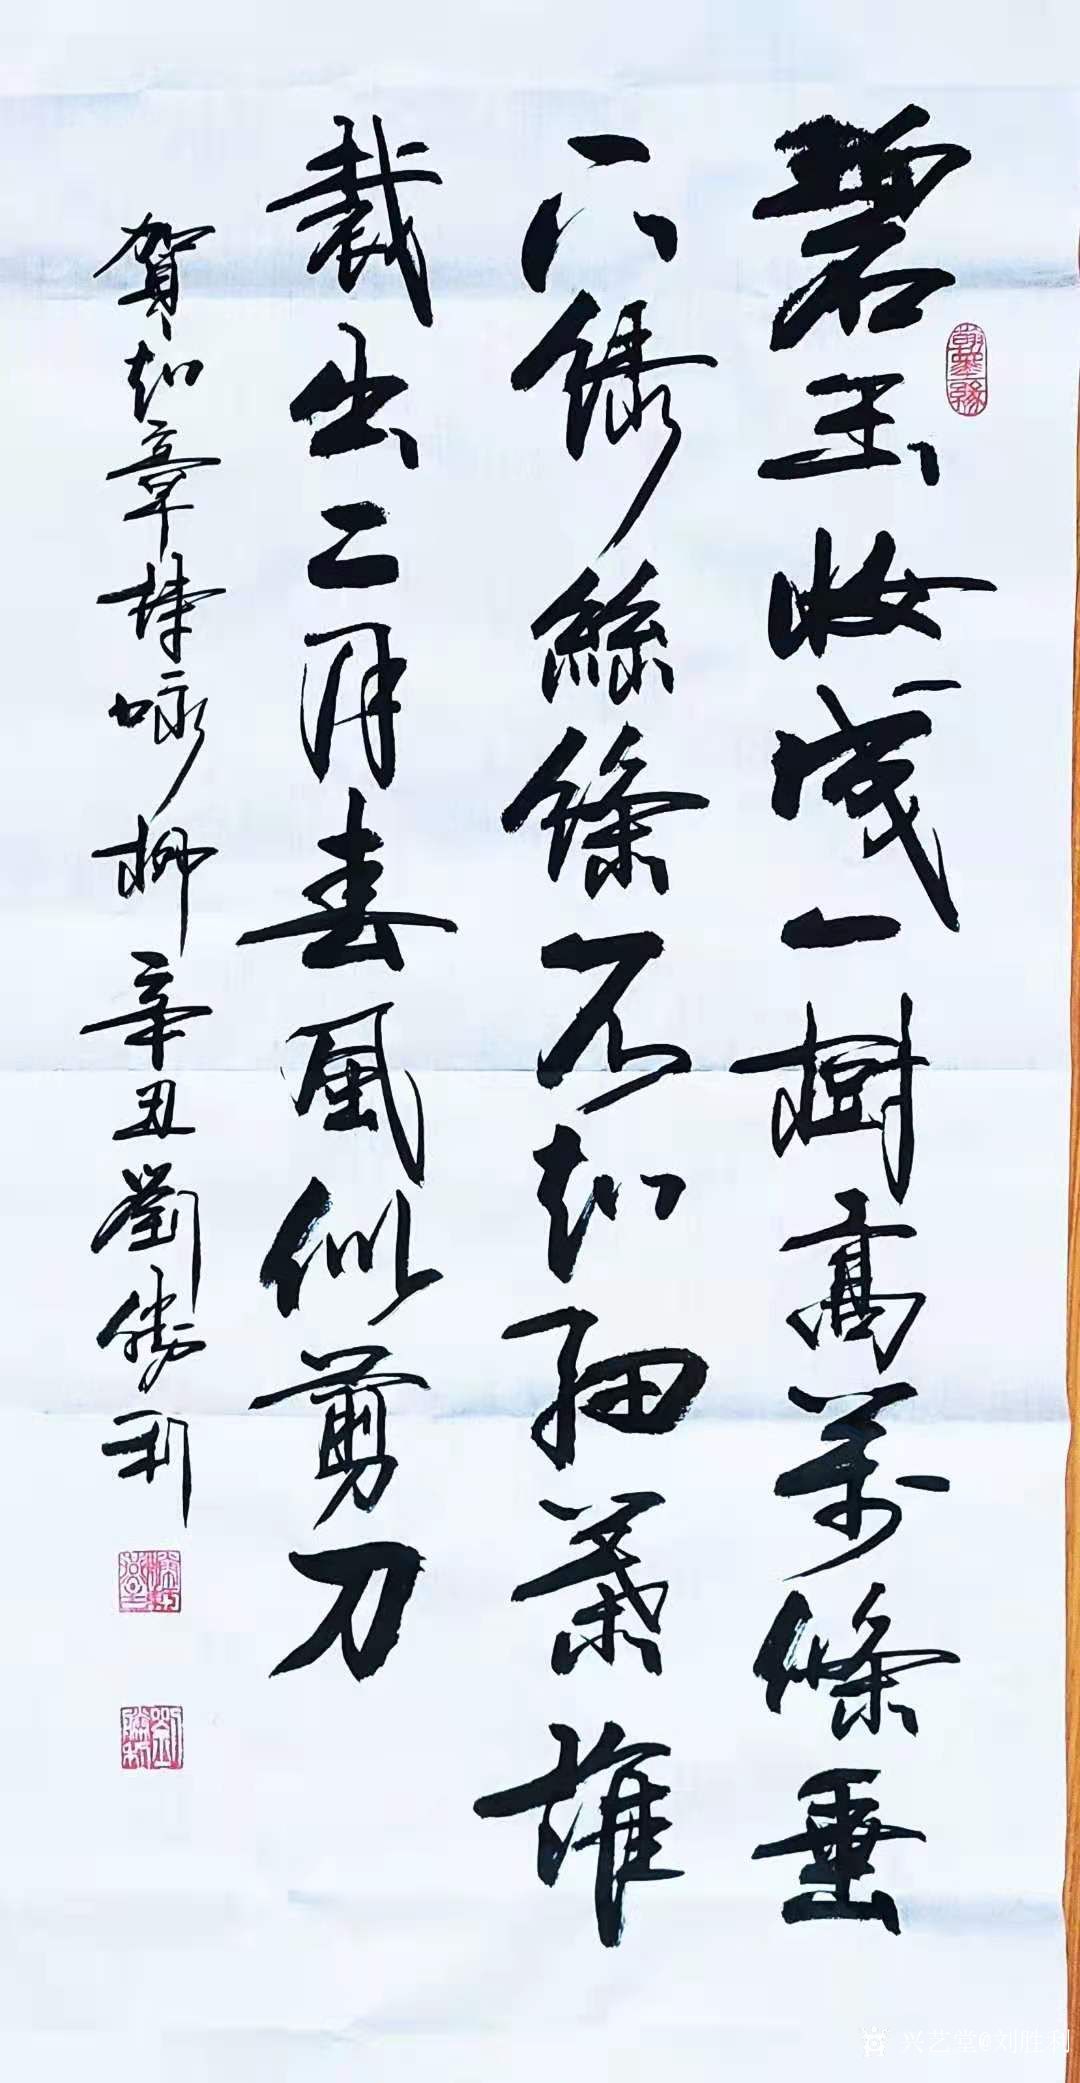 碧玉妝成一樹高萬條垂
下綠絲絛不知細葉誰
裁出二月春風似剪刀
賀知章詩咏柳辛丑劉勝利
劉勝利
兴艺堂@刘胜利